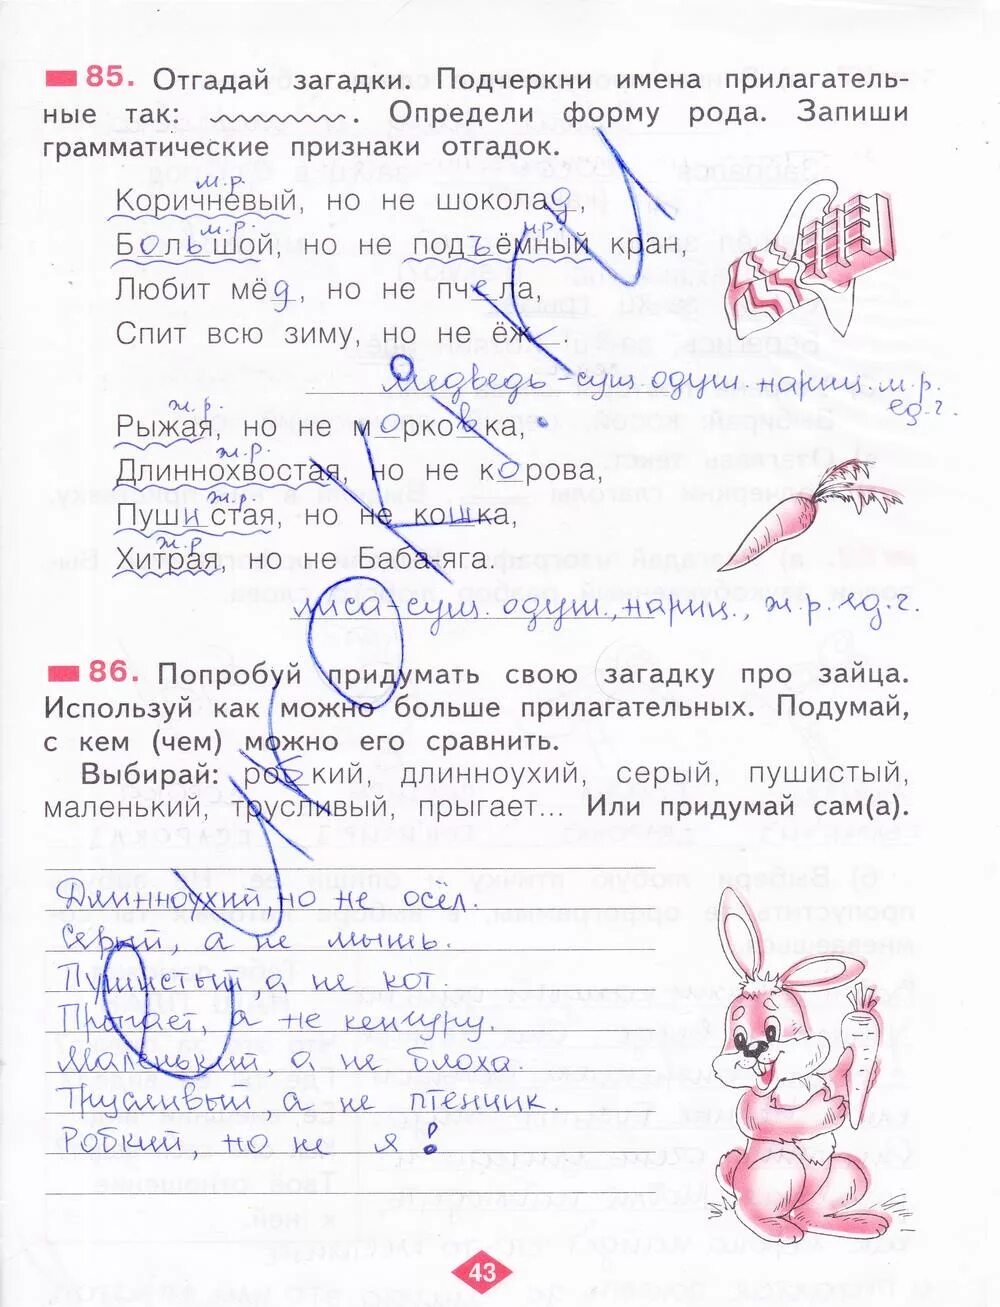 85. Отгадай загадки. Подчеркни имена прилагатель-
ные так: . Определи форму рода. Запиши
грамматические признаки отгадок.
м.р.
Коричневый, но не шоколад,
м.р. м.р.
Большой, но не подъёмный кран,
Любит мёд, но не пчела,
Спит всю зиму, но не ёж.
медведь - сущ. одуш. нариц. м.р.
ед.ч.
ж.р.
Рыжая, но не морковка,
ж.р.
Длиннохвостая, но не корова,
ж.р.
Пушистая, но не кошка,
ж.р
Хитрая, но не Баба-яга.
лиса - сущ. одуш., нариц., ж.р. ед.ч.
86. Попробуй придумать свою загадку про зайца.
Используй как можно больше прилагательных. Подумай,
с кем (чем) можно его сравнить.
Выбирай: робкий, длинноухий, серый, пушистый,
маленький, трусливый, прыгает... Или придумай сам(а).
Длинноухий, но не осёл.
Серый, а не мышь.
Пушистый, а не кот.
Прыгает, а не кенгуру.
Маленький, а не блоха.
Трусливый а не птенчик
Робкий, но не я!
43